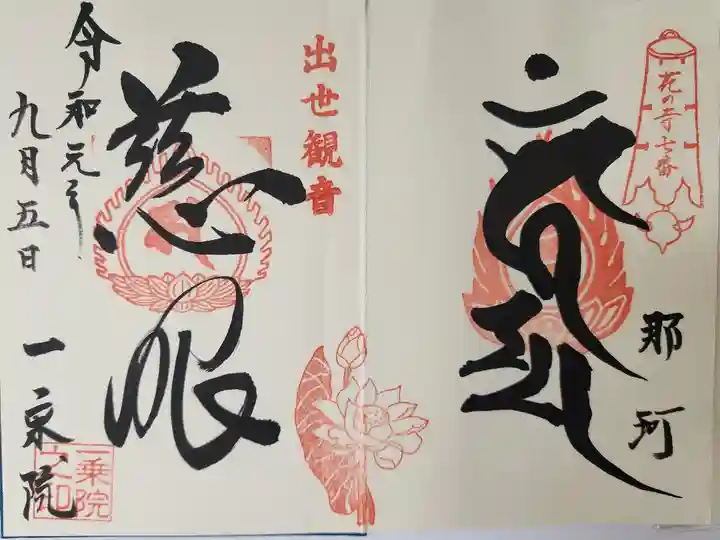 花の寺七番
那珂
出世観音
慈眼
令和元年
九月五日
一乗院
一乗院